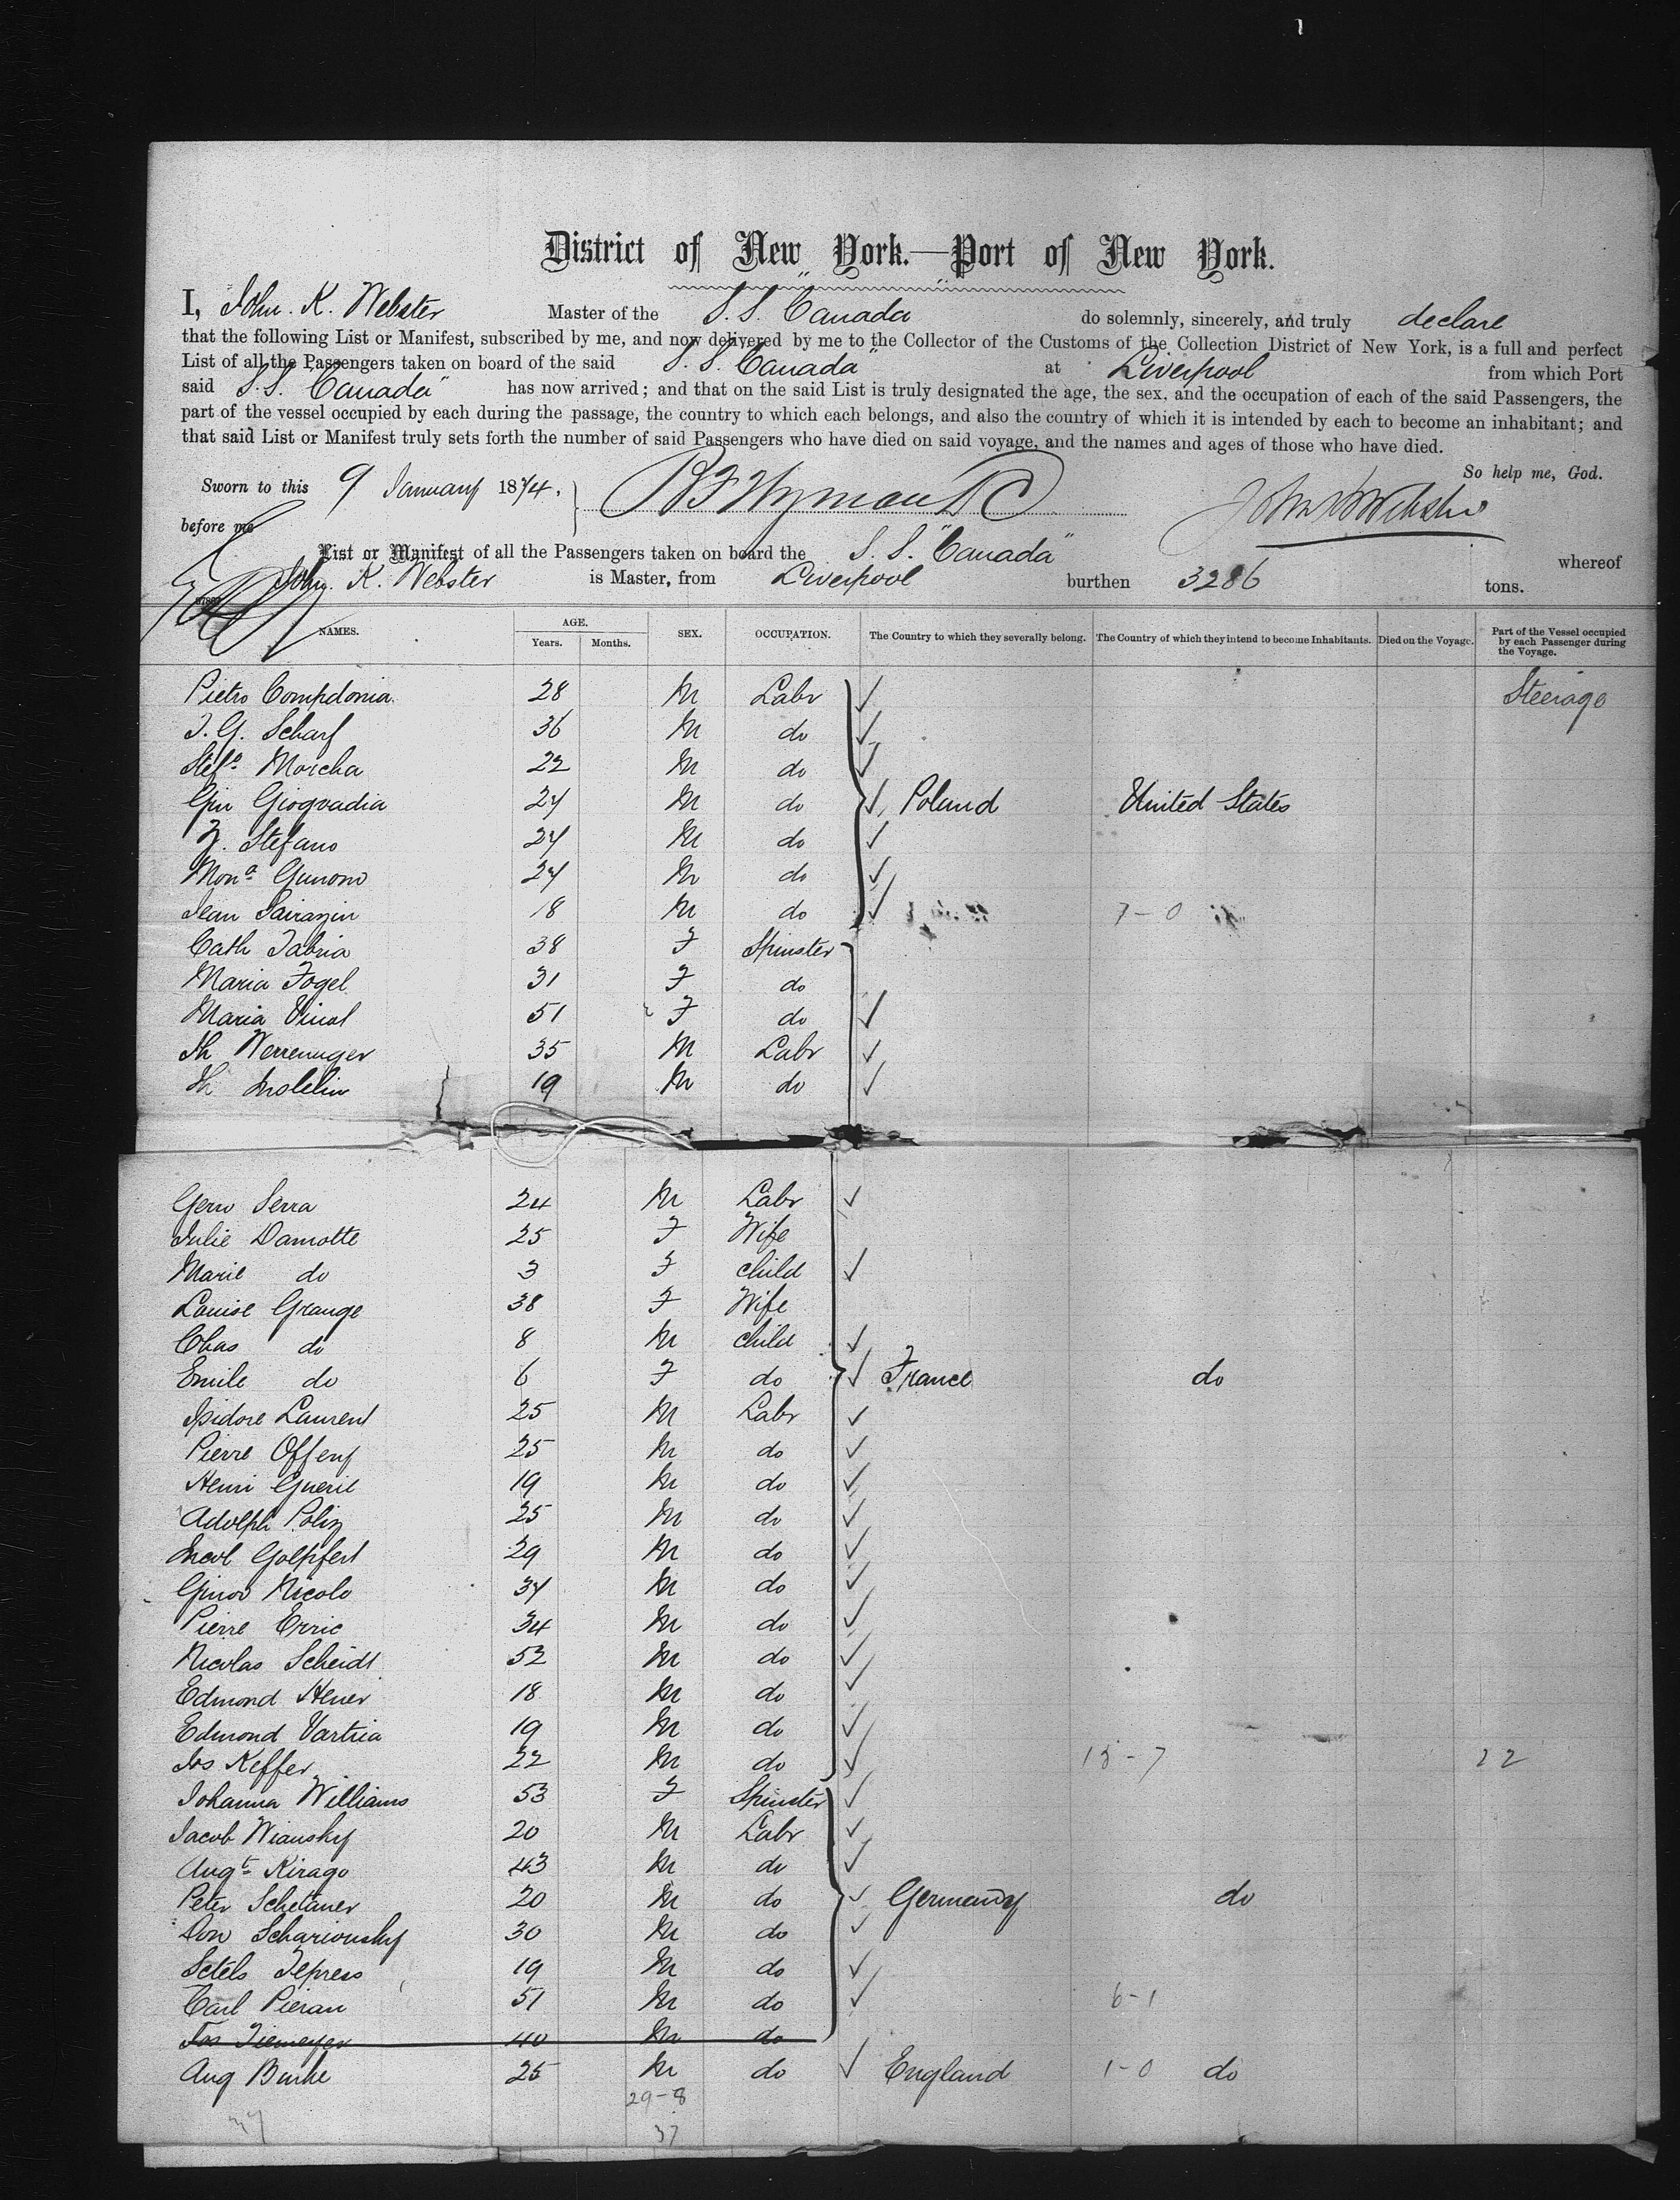 District of New York.—Port of New York.
I, John. K. Webster Master of the S. S. Canada do solemnly, sincerely, and truly declare
that the following List or Manifest, subscribed by me, and now delivered by me to the Collector of the Customs of the Collection District of New York, is a full and perfect
List of all the Passengers taken on board of the said S. S. "Canada" at Liverpool from which Port
said S. S. "Canada" has now arrived; and that on the said List is truly designated the age, the sex, and the occupation of each of the said Passengers, the
part of the vessel occupied by each during the passage, the country to which each belongs, and also the country of which it is intended by each to become an inhabitant; and
that said List or Manifest truly sets forth the number of said Passengers who have died on said voyage, and the names and ages of those who have died.
So help me, God.
Sworn to this 9 January 1874.
before me
List or Manifest of all the Passengers taken on board the S. S. "Canada" whereof
John. K. Webster is Master, from Liverpool burthen 3286 tons.
NAMES. AGE. Years. Months. SEX. OCCUPATION. The Country to which they severally belong. The Country of which they intend to become Inhabitants. Died on the Voyage. Part of the Vessel occupied by each Passenger during the Voyage.
Pietro Compdonia 28 M Labr Steerage
J. G. Scharf 36 M do
Stefo Morcha 22 M do
Giu Gioqvadia 24 M do Poland United States
Stefano 24 M do
Mona 24 M do
Jean Sairazin 18 M do 7-0
Cath Tabria 38 F Spinster
Maria Fogel 31 F do
Maria Vinol 51 F do
Th Werrenuger 35 M Labr
Th 19 M do
Gero Serra 24 M Labr
Julie Damotte 25 F Wife
Marie do 3 F child
Louise Grange 38 F Wife
Chas do 8 M child
Emile do 6 F do France do
Isidore Laurent 25 M Labr
Pierre Offenf 25 M do
Henri Guerie 19 M do
Adolph Polin 25 M do
Golpfert 29 M do
Nicolo 34 M do
Pierre Erric 34 M do
Nicolas Scheidt 52 M do
Edmond Heuer 18 M do
Edmond Vartria 19 M do
Jos Keffer 22 M do 15-7 22
Johanna Williams 53 F Spinster
Jacob Wiansky 20 M Labr
Augt Kirago 43 M do
Peter Schetauer 20 M do Germany do
Don Schariousky 30 M do
Setels Tepress 19 M do
Carl Pieran 51 M do 6-1
Jos Tiemeyer 40 M do
Aug Burke 25 M do England 1-0 do
29-8
37 37